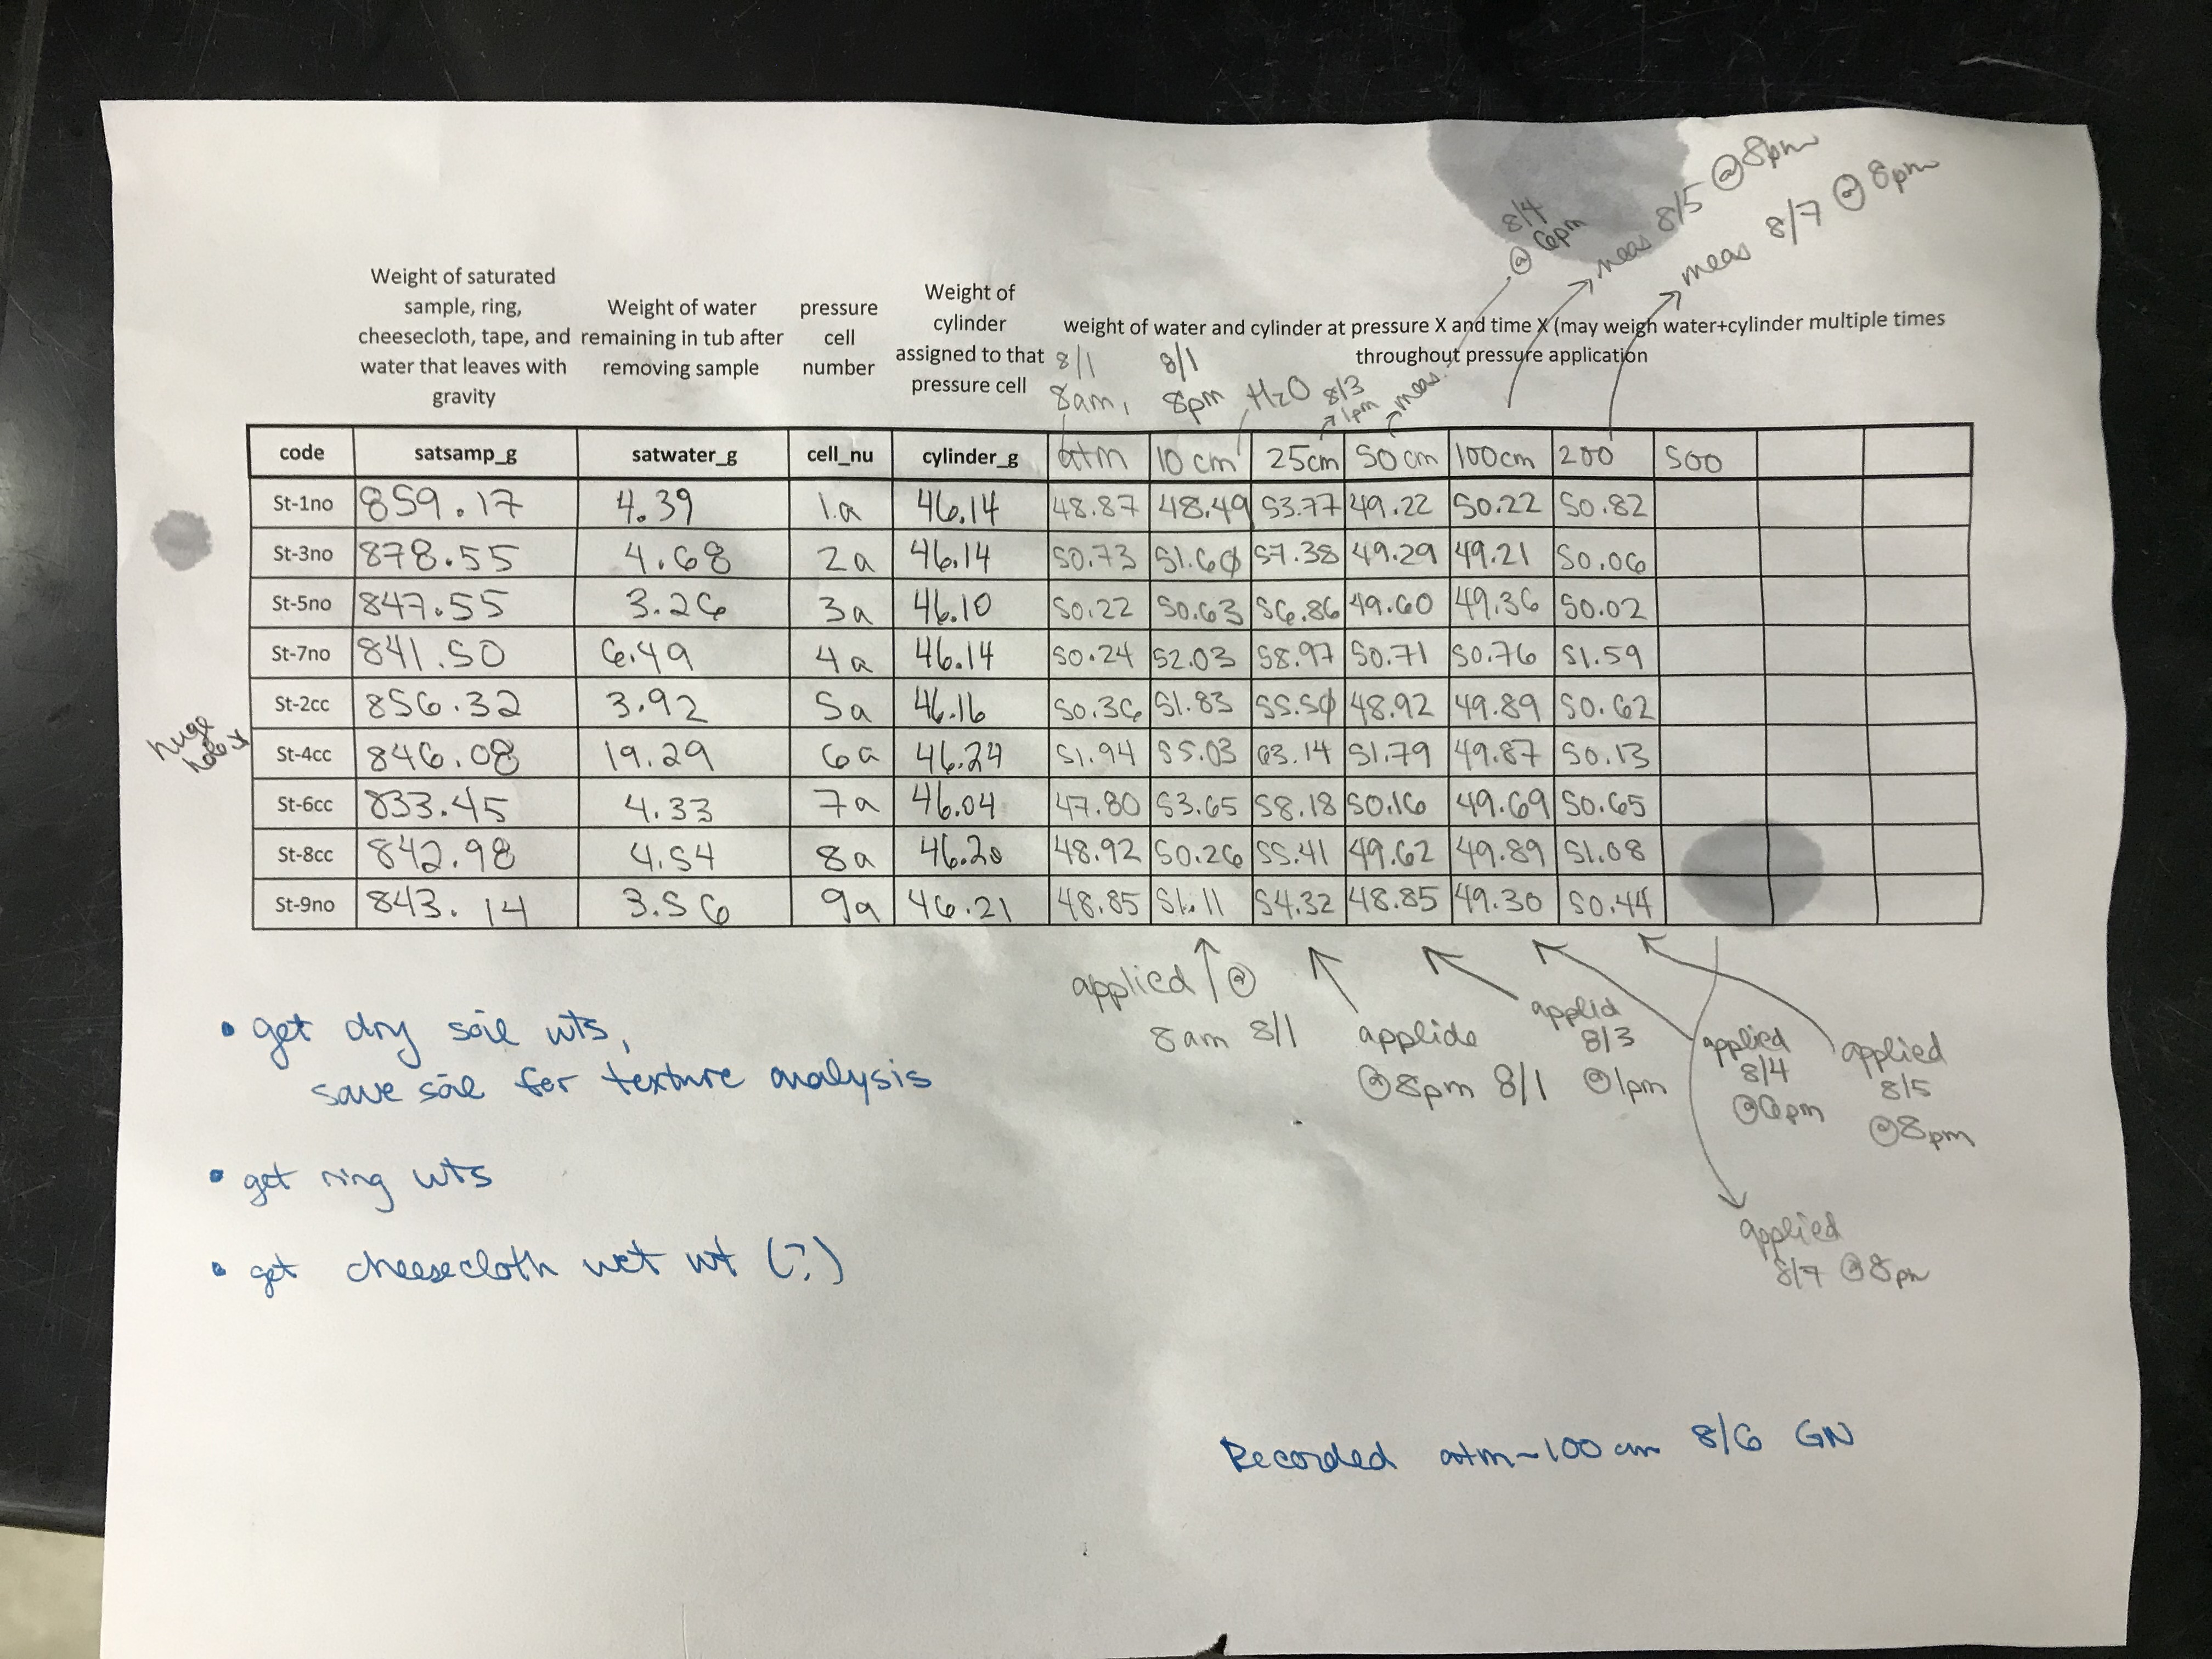 8/4
@ 6pm
meas 8/5 @ 8pm
meas 8/7 @ 8pm
Weight of saturated
sample, ring,
cheesecloth, tape, and
water that leaves with
gravity
Weight of water
remaining in tub after
removing sample
pressure
cell
number
Weight of
cylinder
assigned to that
pressure cell
weight of water and cylinder at pressure X and time X (may weigh water+cylinder multiple times
throughout pressure application
8/1
8am,
8/1
8pm
H2O
8/3
1pm
meas.
code satsamp_g satwater_g cell_nu cylinder_g atm 10 cm 25cm 50 cm 100cm 200 500
St-1no 859.17 4.39 1a 46.14 48.87 48.49 53.77 49.22 50.22 50.82
St-3no 878.55 4.68 2a 46.14 50.73 51.60 57.38 49.29 49.21 50.06
St-5no 847.55 3.26 3a 46.10 50.22 50.63 56.86 49.60 49.36 50.02
St-7no 841.50 6.49 4a 46.14 50.24 52.03 58.97 50.71 50.76 51.59
St-2cc 856.32 3.92 5a 46.16 50.36 51.83 55.50 48.92 49.89 50.62
huge
St-4cc 846.08 19.29 6a 46.24 51.94 55.03 63.14 51.79 49.87 50.13
St-6cc 833.45 4.33 7a 46.04 47.80 53.65 58.18 50.16 49.69 50.65
St-8cc 842.98 4.54 8a 46.20 48.92 50.26 55.41 49.62 49.89 51.08
St-9no 843.14 3.56 9a 46.21 48.85 51.11 54.32 48.85 49.30 50.44
applied @
8am 8/1
applide
@8pm 8/1
applid
8/3
@1pm
applied
8/4
@6pm
applied
8/5
@8pm
applied
8/7 @8pm
• get dry soil wts,
save soil for texture analysis
• get ring wts
• get cheesecloth wet wt (?)
Recorded atm~100 cm 8/6 GN